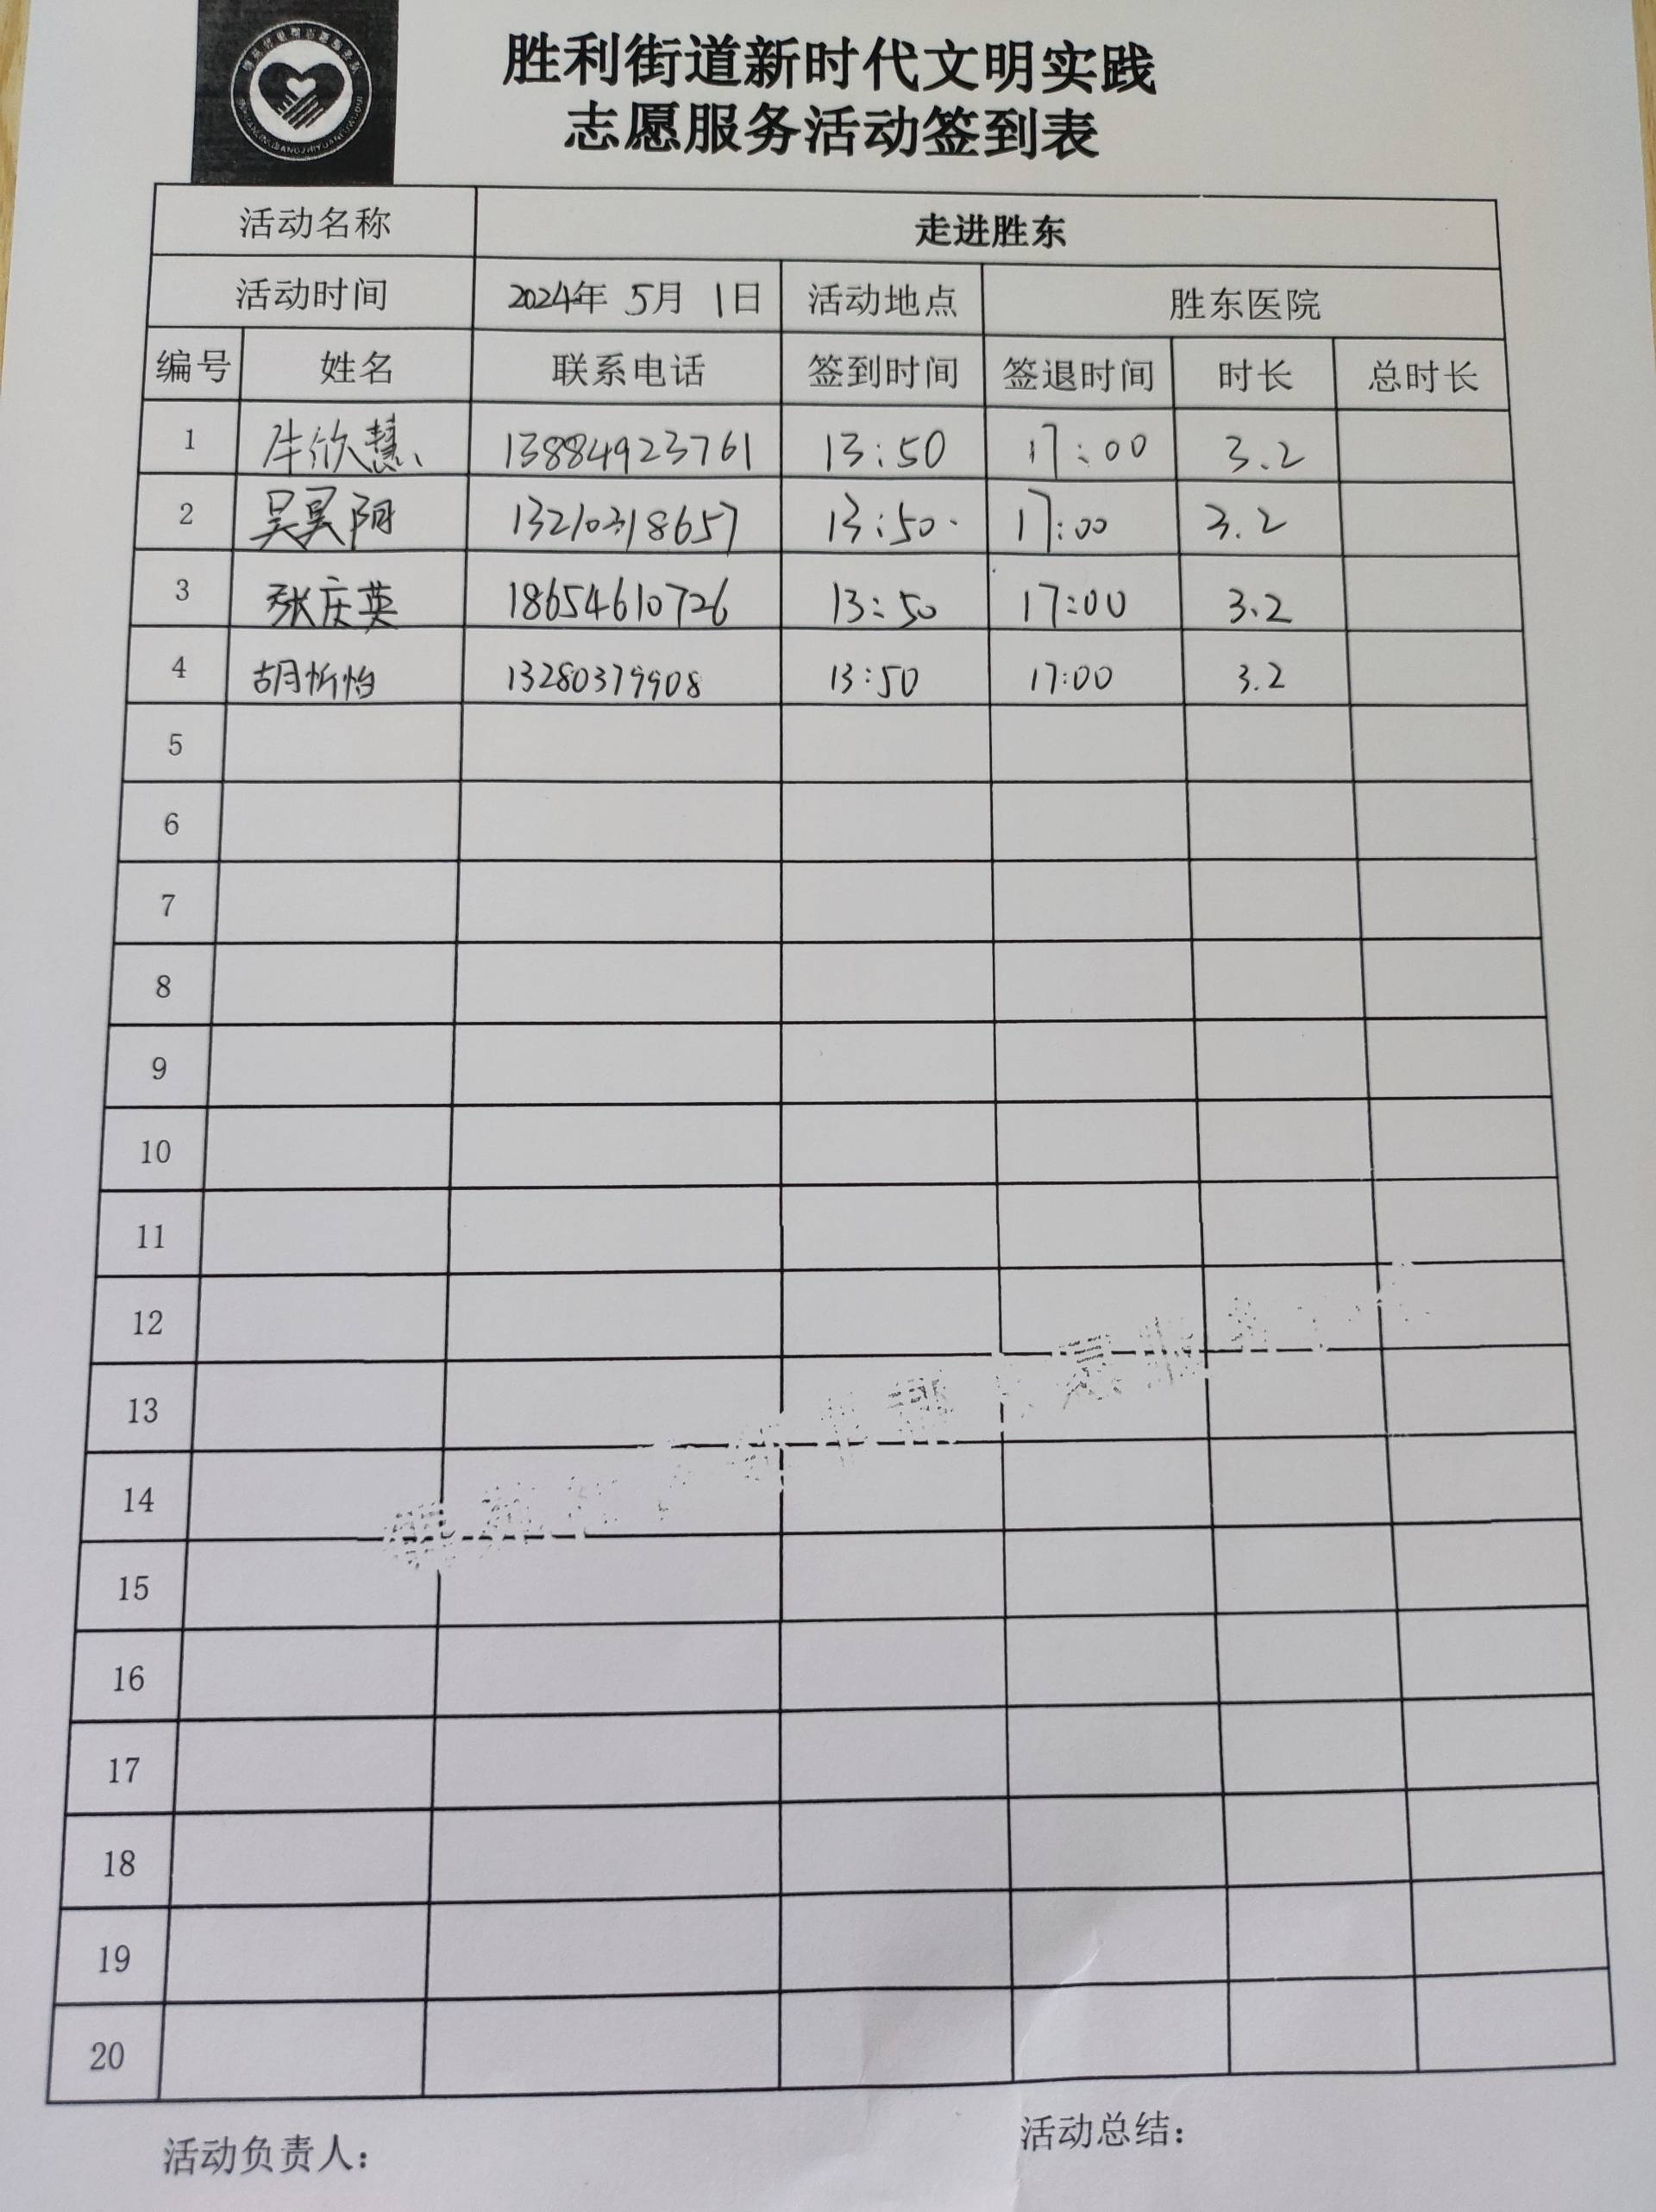 胜利街道新时代文明实践
志愿服务活动签到表
活动名称 走进胜东
活动时间 2024年 5月 1日 活动地点 胜东医院
编号 姓名 联系电话 签到时间 签退时间 时长 总时长
1 牛欣慧 13884923761 13:50 17:00 3.2
2 吴昊阳 13210318657 13:50 17:00 3.2
3 张庆英 18654610726 13:50 17:00 3.2
4 胡忻怡 13280379908 13:50 17:00 3.2
5
6
7
8
9
10
11
12
13
14
15
16
17
18
19
20
活动负责人： 活动总结：